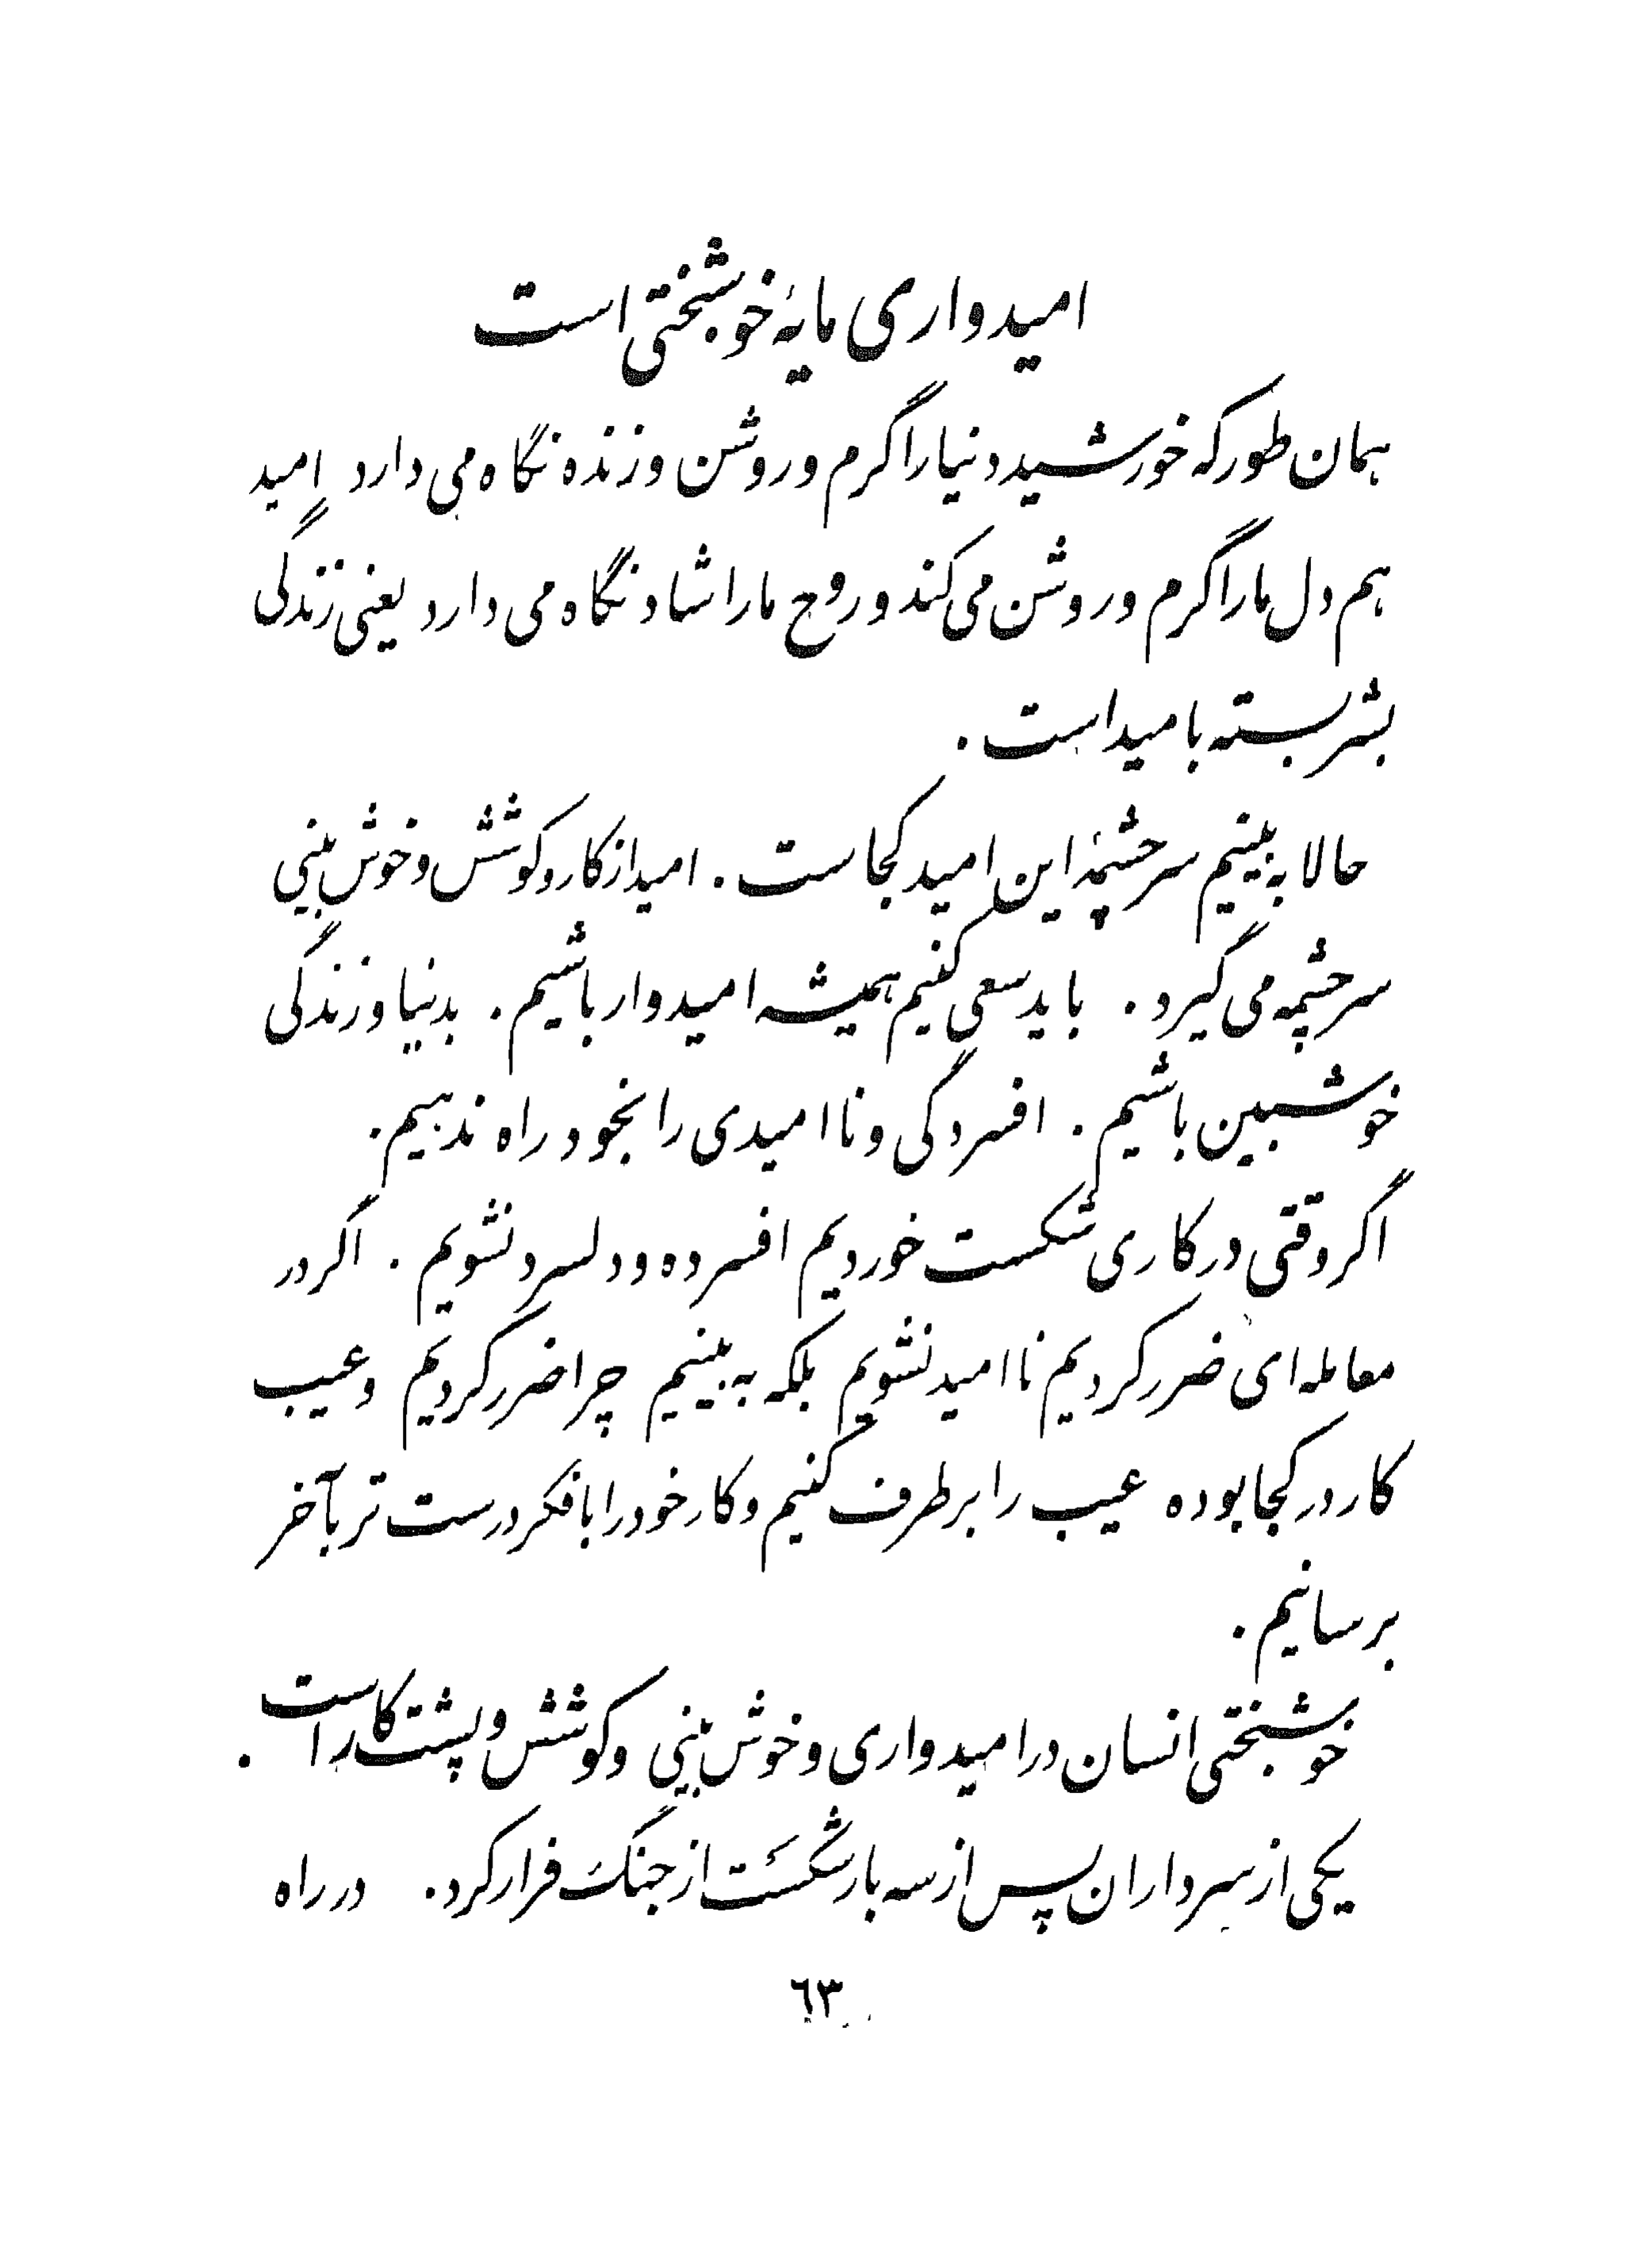 امیدواری مایهٔ خوشبختی است
همان طور که خورشید دنیا را گرم و روشن و زنده نگاه می دارد امید
هم دل ما را گرم و روشن می کند و روح ما را شاد نگاه می دارد یعنی زندگی
بشر بسته بامید است .
حالا به بینیم سرچشمهٔ این امید کجاست . امید از کار و کوشش و خوش بینی
سرچشمه می گیرد . باید سعی کنیم همیشه امیدوار باشیم . بدنیا و زندگی
خوشبین باشیم . افسردگی و نا امیدی را بخود راه ندهیم .
اگر وقتی در کاری شکست خوردیم افسرده و دلسرد نشویم . اگر در
معامله ای ضرر کردیم نا امید نشویم بلکه به بینیم چرا ضرر کردیم و عیب
کار در کجا بوده عیب را بر طرف کنیم و کار خود را با فکر درست تر بآخر
برسانیم .
خوشبختی انسان در امیدواری و خوش بینی و کوشش و پشت کار است .
یکی از سرداران پس از سه بار شکست از جنگ فرار کرد . در راه
٦٣